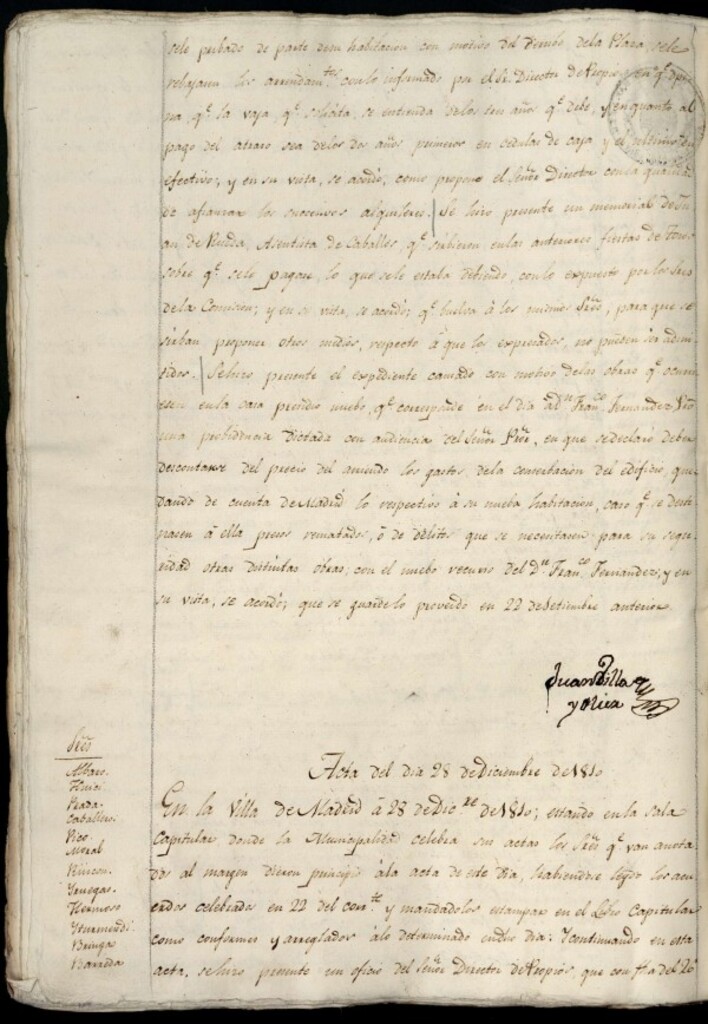 sele pribado de parte de su habitacion con motivo del Derribo, dela Plaza, sele
rebajaron los arrendam.tos con lo informado por el Sr. Director de Propios, en q.e opi
na, q.e la vaja, q.e solicita, se entienda delos tres años q.e debe, y en quanto al
pago del atraso sea delos dos años primeros en cedulas de caja y el ultimo en
efectivo; y en su vista, se acordó, como propone el Señor Director con la qualidad
de afianzar los sucesivos alquileres. Se hizo presente un memorial de Ju
an de Rueda, Asentista de Caballos, q.e subieron en las anteriores fiestas de Toros
sobre q.e sele pague, lo que sele estaba debiendo, con lo expuesto por los Sres
dela Comision; y en su vista, se acordó; q.e buelva á los mismos Sres, para que se
sirban proponer otros medios, respecto á que los expresados, no pueden ser admi
tidos. Se hizo presente el expediente causado con motivo delas obras q.e ocurri
esen en la casa presidio nuebo, q.e corresponde en el dia al D.n Fran.co Fernandez
una probidencia dictada con audiencia del Señor Pror, en que se declaró deber
descontarse del precio del arriendo los gastos, dela conserbacion del edificio, que
dando de cuenta de Madrid lo respectivo á su nueba habitacion, caso q.e se desti
nasen á ella presos rematados, ó de delitos que se necesitasen para su segu
ridad otras distintas obras, con el nuebo recurso del D.n Fran.co Fernandez; y en
su vista, se acordó; que se guarde lo proveido en 22 de Setiembre anterior.
Juan Villa
y Olier
Acta del dia 28 de Diciembre de 1810
Sres
Albaro.
Prada.
Caballero.
Pico.
Moral
Rincon.
Yenegas.
Hermoso
Yturmendi
Bringas
Barreda
En la Villa de Madrid á 28 de Dic.re de 1810; estando en la sala
Capitular donde la Municipalidad celebra sus actas los Sres q.e van anota
dos al margen dieron principio ála acta de este dia, habiendose leydo los acu
erdos celebrados en 22 del corr.te y mandadolos estampar en el Libro Capitular
como conformes y arreglados álo determinado en dho dia: Y continuando en esta
acta, se hizo presente un oficio del Señor Director de Propios, que con fha del 26